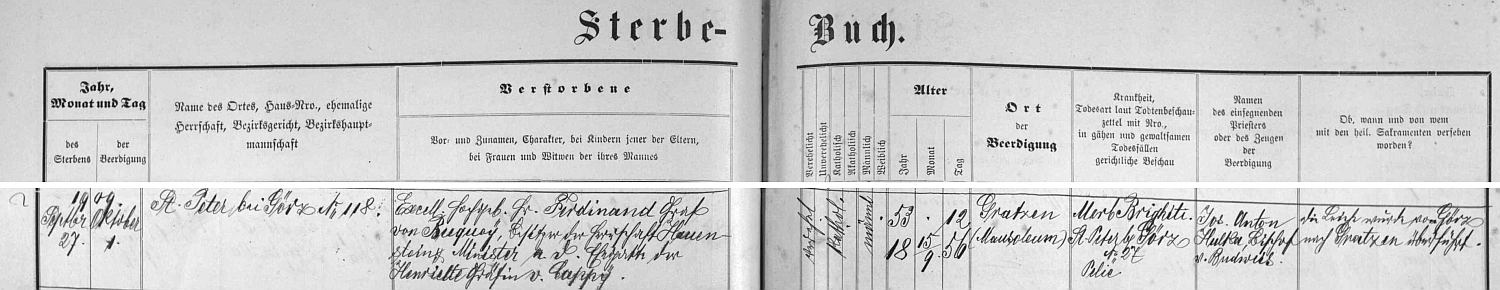 Sterbe-Buch.
Jahr, Monat und Tag
des Sterbens
der Beerdigung
Name des Ortes, Haus-Nro., ehemalige
Herrschaft, Bezirksgericht, Bezirkshaupt-
mannschaft
Verstorbene
Vor- und Zunamen, Charakter, bei Kindern jener der Eltern,
bei Frauen und Witwen der ihres Mannes
Verehelicht
Unverehelicht
Katholisch
Akatholisch
Männlich
Weiblich
Alter
Jahr
Monat
Tag
Ort
der
Beerdigung
Krankheit,
Todesart laut Todtenbeschau-
zettel mit Nro.,
in gähen und gewaltsamen
Todesfällen
gerichtliche Beschau
Namen
des einsegnenden
Priesters
oder des Zeugen
der
Beerdigung
Ob, wann und von wem
mit den heil. Sakramenten versehen
worden?
1909.
Septbr 27.
Oktober 1.
St. Peter bei Görz No 118.
Excell. hochgeb. Hr. Ferdinand Graf
von Buquoy, Besitzer der Herrschaft Hauen-
stein, Minister a. d. Ehegatte der
Henriette Gräfin v. Cappy.
kathol.
männl.
53 . 12
18 15/9 56
Gratzen
(Mausoleum)
Morb. Brightii.
St. Peter b. Görz
No 27
Jos. Anton
Hulka Bischof
v. Budweis.
die Leiche wurde von Görz
nach Gratzen überführt.